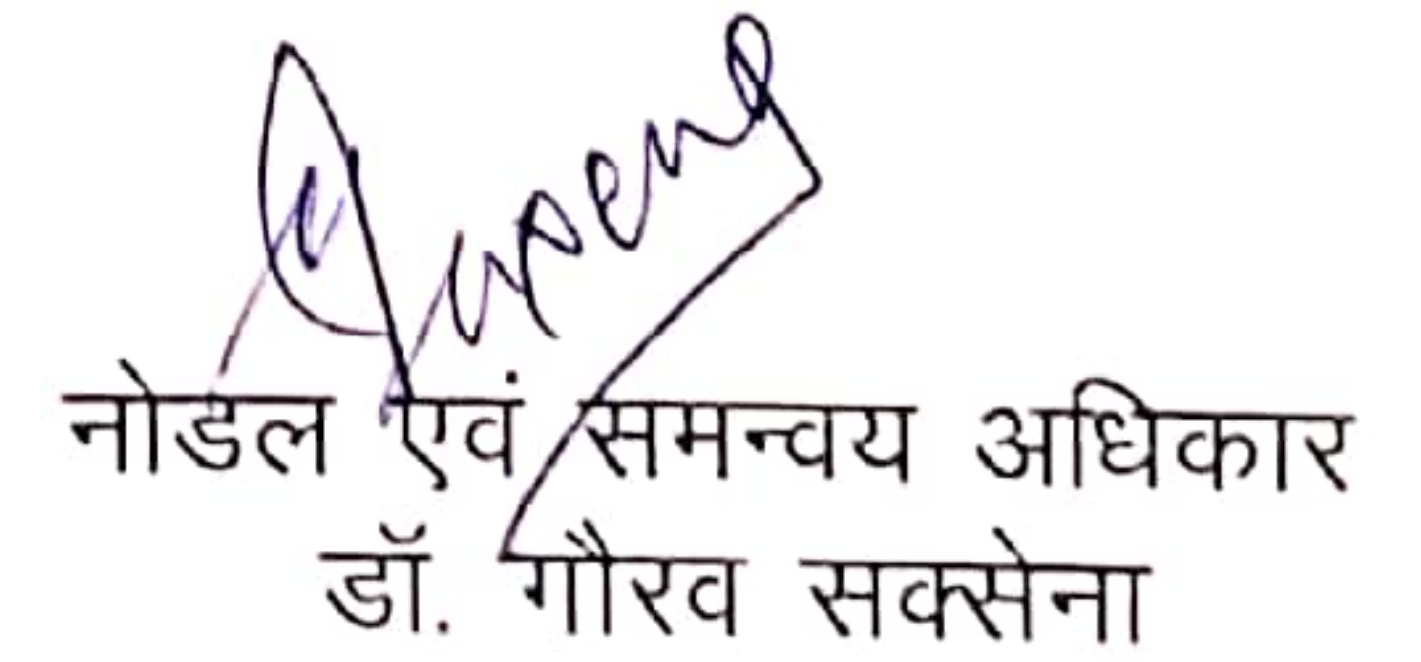 नोडल एवं समन्वय अधिकार
डॉ. गौरव सक्सेना